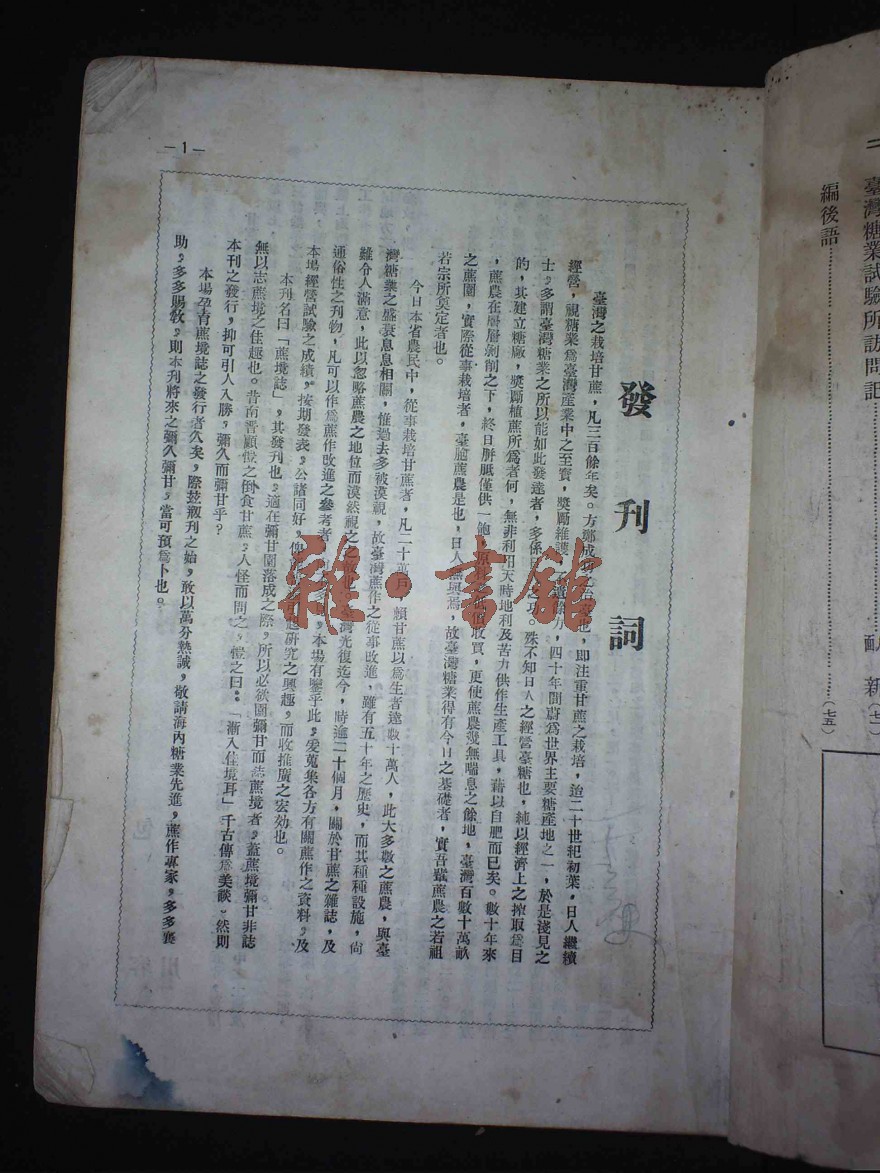 二　臺灣糖業試驗所訪問記
勵　新(七二)
編後語……(七五)
發刊詞
臺灣之栽培甘蔗，凡三百餘年矣。方鄭成功之治臺也，即注重甘蔗之栽培，迨二十世紀初葉，日人繼續
經營，視糖業爲臺灣產業中之至寶，獎勵維護，不遺餘力，四十年間蔚爲世界主要糖產地之一，於是淺見之
士，多謂臺灣糖業之所以能如此發達者，多係日人之功。殊不知日人之經營臺糖也，純以經濟上之搾取爲目
的，其建立糖廠，獎勵植蔗所爲者何，無非利用天時地利及苦力供作生產工具，藉以自肥而已矣。數十年來
，蔗農在層層剝削之下，終日胼胝僅供一飽，原料低價收買，更使蔗農幾無喘息之餘地，臺灣百數十萬畝
之蔗園，實際從事栽培者，臺胞蔗農是也，日人無與焉，故臺灣糖業得有今日之基礎者，實吾儕蔗農之若祖
若宗所奠定者也。
今日本省農民中，從事栽培甘蔗者，凡二十萬戶，賴甘蔗以爲生者達數十萬人，此大多數之蔗農，與臺
灣糖業之盛衰息息相關，惟過去多被漠視，故臺灣蔗作之從事改進，雖有五十年之歷史，而其種種設施，尙
難令人滿意，此以忽略蔗農之地位而漠然視之之故也。臺灣光復迄今，時逾二十個月，關於甘蔗之雜誌，及
通俗性之刊物，凡可以作爲蔗作改進之參考者，尙不多，本場有鑒乎此，爰蒐集各方有關蔗作之資料，及
本場經營試驗之成績，按期發表，公諸同好，俾研究之興趣，而收推廣之宏効也。
本刊名曰「蔗境誌」，其發刊也，適在彌甘園落成之際，所以必欲園彌甘而誌蔗境者，蓋蔗境彌甘非誌
無以志蔗境之佳趣也。昔南晋顧愷之倒食甘蔗，人怪而問之，愷之曰：「漸入佳境耳」千古傳爲美談。然則
本刊之發行，抑可引人入勝，彌久而彌甘乎？
本場孕育蔗境誌之發行者久矣，際玆刱刊之始，敢以萬分熱誠，敬請海內糖業先進，蔗作專家，多多襄
助，多多賜敎，則本刊將來之彌久彌甘，當可預爲卜也。
—1—
雅·書館